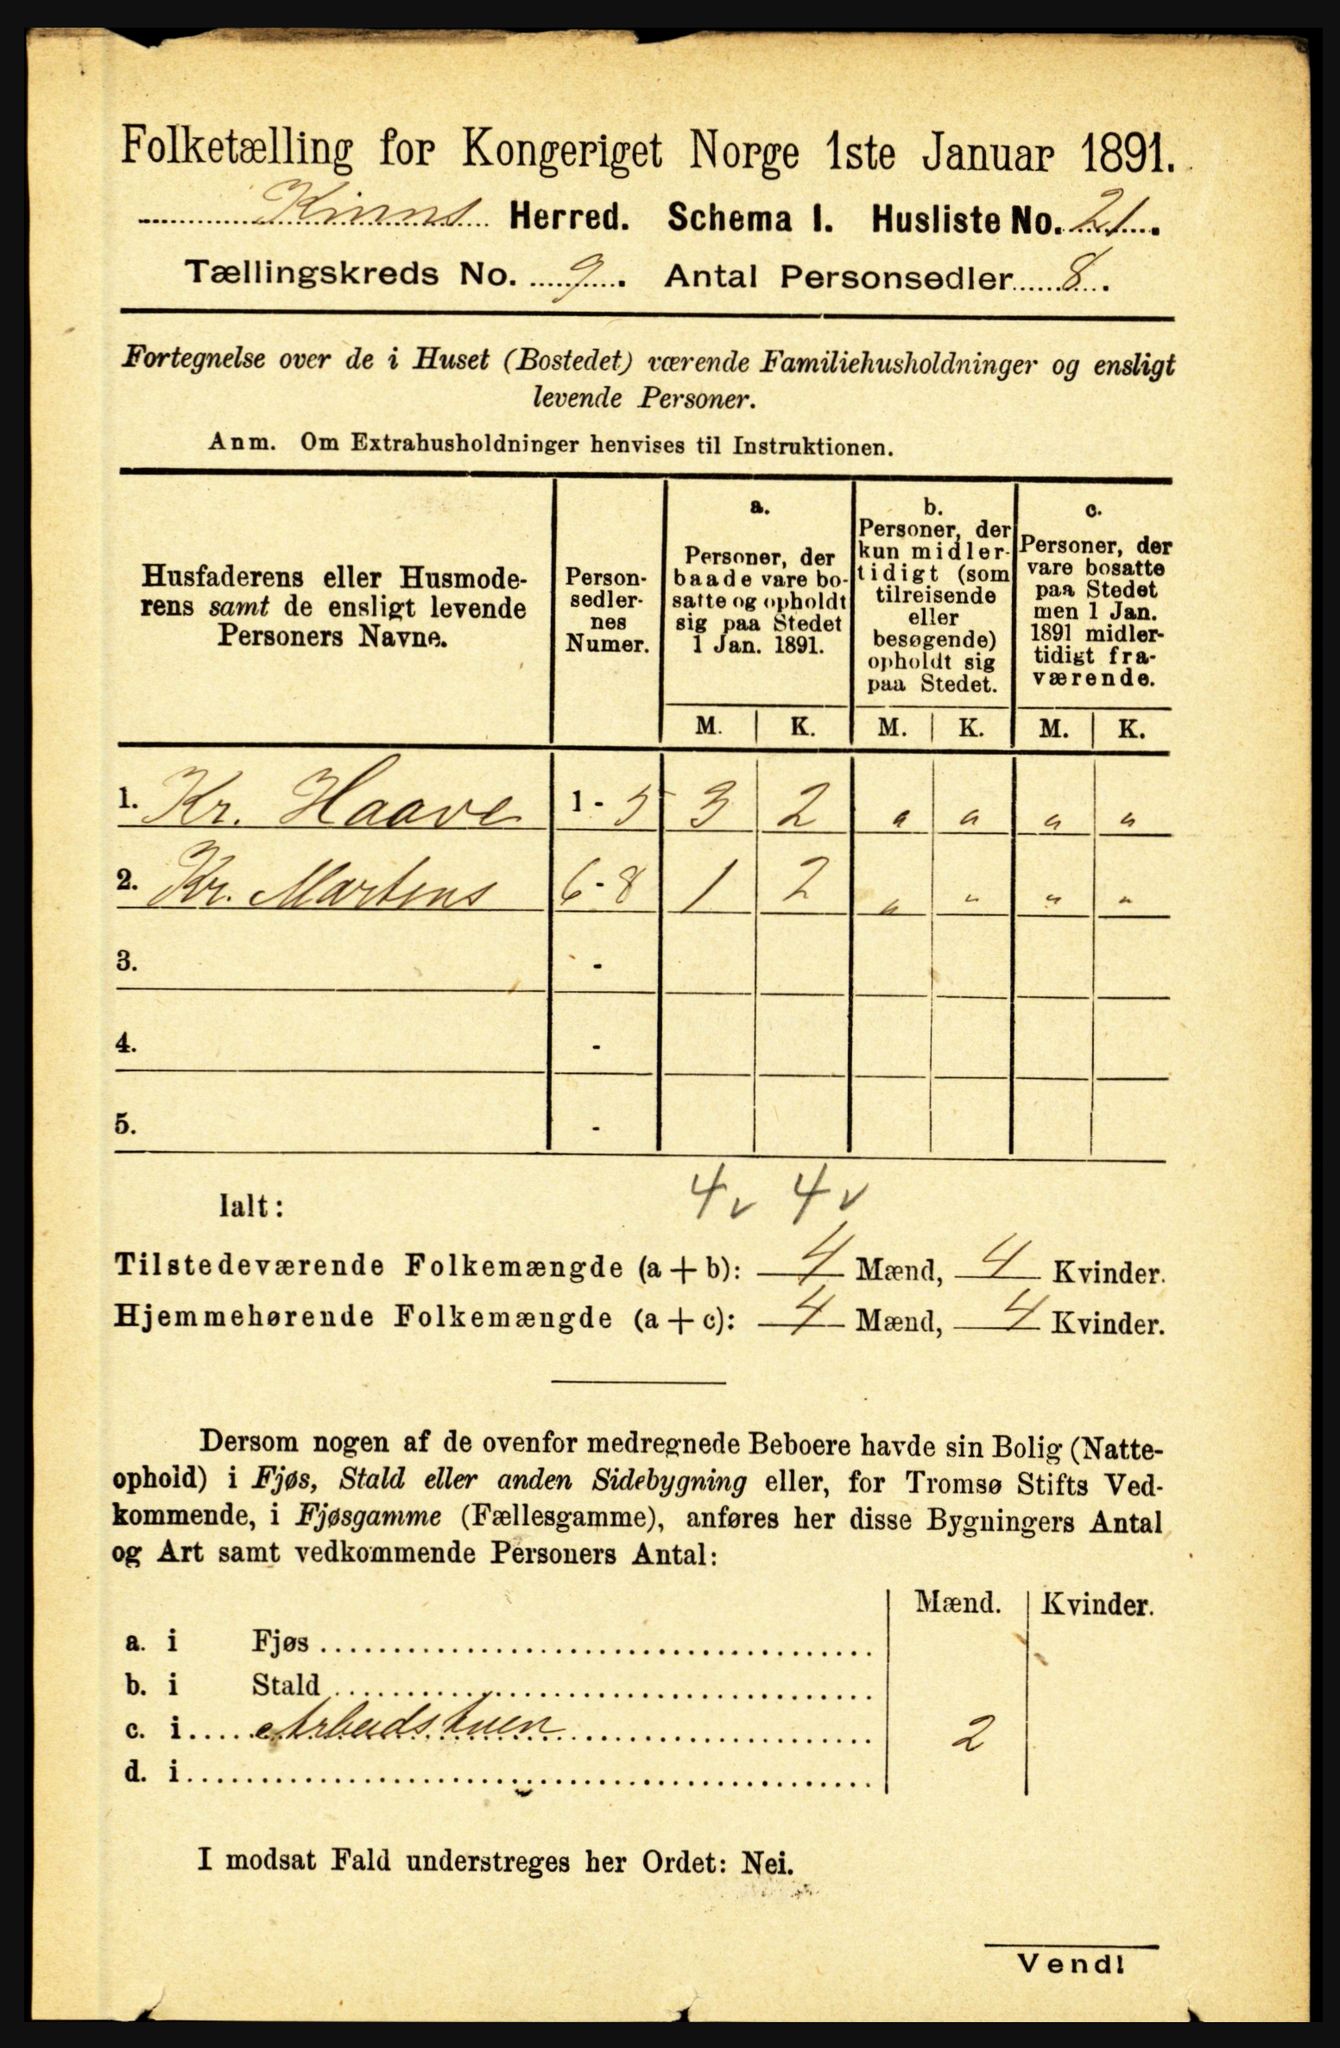 Folketælling for Kongeriget Norge 1ste Januar 1891.
Kinns Herred. Schema I. Husliste No. 21.
Tællingskreds No. 9. Antal Personsedler 8.
Fortegnelse over de i Huset (Bostedet) værende Familiehusholdninger og ensligt
levende Personer.
Anm. Om Extrahusholdninger henvises til Instruktionen.
Husfaderens eller Husmode-
rens samt de ensligt levende
Personers Navne.
Person-
sedler-
nes
Numer.
a.
Personer, der
baade vare bo-
satte og opholdt
sig paa Stedet
1 Jan. 1891.
b.
Personer, der
kun midler-
tidigt (som
tilreisende
eller
besøgende)
opholdt sig
paa Stedet.
c.
Personer, der
vare bosatte
paa Stedet
men 1 Jan.
1891 midler-
tidigt fra-
værende.
M. K. M. K. M. K.
1. Kr. Haave 1 - 5 3 2 " " " "
2. Kr. Martens 6 - 8 1 2 " " " "
3. -
4. -
5. -
4 v 4 v
Ialt:
Tilstedeværende Folkemængde (a + b): 4 Mænd, 4 Kvinder.
Hjemmehørende Folkemængde (a + c): 4 Mænd, 4 Kvinder.
Dersom nogen af de ovenfor medregnede Beboere havde sin Bolig (Natte-
ophold) i Fjøs, Stald eller anden Sidebygning eller, for Tromsø Stifts Ved-
kommende, i Fjøsgamme (Fællesgamme), anføres her disse Bygningers Antal
og Art samt vedkommende Personers Antal:
Mænd. Kvinder.
a. i Fjøs
b. i Stald
c. i Arbeidstuen 2
d. i
I modsat Fald understreges her Ordet: Nei.
Vend!